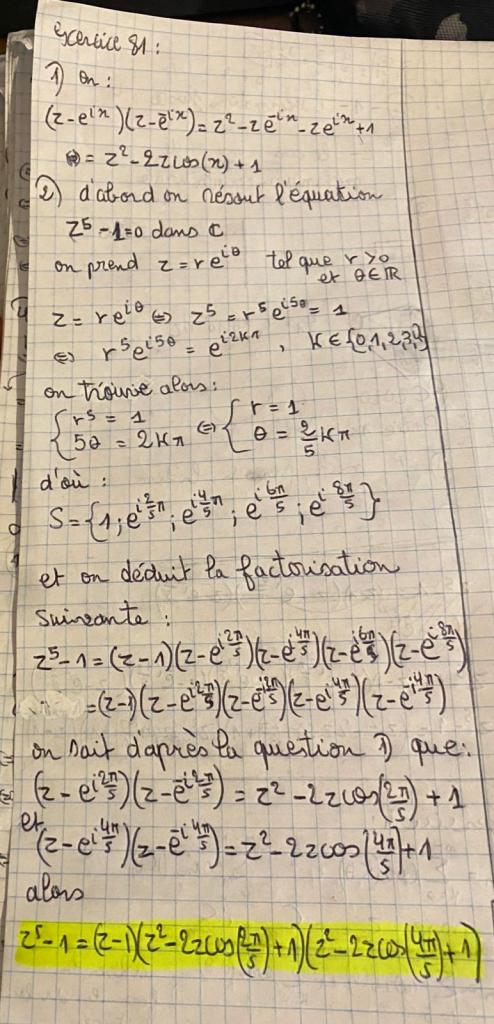 Exercice 81 :
1) on :
(z-e^{ix})(z-e^{-ix}) = z² - ze^{-ix} - ze^{ix} + 1
= z² - 2z cos(x) + 1
2) d'abord on résout l'équation
z⁵ - 1 = 0 dans ℂ
on prend z = re^{iθ} tel que r > 0
et θ ∈ ℝ
z = re^{iθ} ⇔ z⁵ = r⁵e^{i5θ} = 1
⇔ r⁵e^{i5θ} = e^{i2kπ} , k ∈ {0,1,2,3,4}
on trouve alors :
{ r⁵ = 1 ⇔ { r = 1
{ 5θ = 2kπ { θ = \frac{2}{5}kπ
d'où :
S = {1 ; e^{i\frac{2}{5}π} ; e^{i\frac{4}{5}π} ; e^{i\frac{6π}{5}} ; e^{i\frac{8π}{5}}}
et on déduit la factorisation
suivante :
z⁵ - 1 = (z-1)(z-e^{i\frac{2π}{5}})(z-e^{i\frac{4π}{5}})(z-e^{i\frac{6π}{5}})(z-e^{i\frac{8π}{5}})
= (z-1)(z-e^{i\frac{2π}{5}})(z-e^{-i\frac{2π}{5}})(z-e^{i\frac{4π}{5}})(z-e^{-i\frac{4π}{5}})
on sait d'après la question 1) que :
(z-e^{i\frac{2π}{5}})(z-e^{-i\frac{2π}{5}}) = z² - 2z cos(\frac{2π}{5}) + 1
et
(z-e^{i\frac{4π}{5}})(z-e^{-i\frac{4π}{5}}) = z² - 2z cos(\frac{4π}{5}) + 1
alors
z⁵ - 1 = (z-1)(z² - 2z cos(\frac{2π}{5}) + 1)(z² - 2z cos(\frac{4π}{5}) + 1)